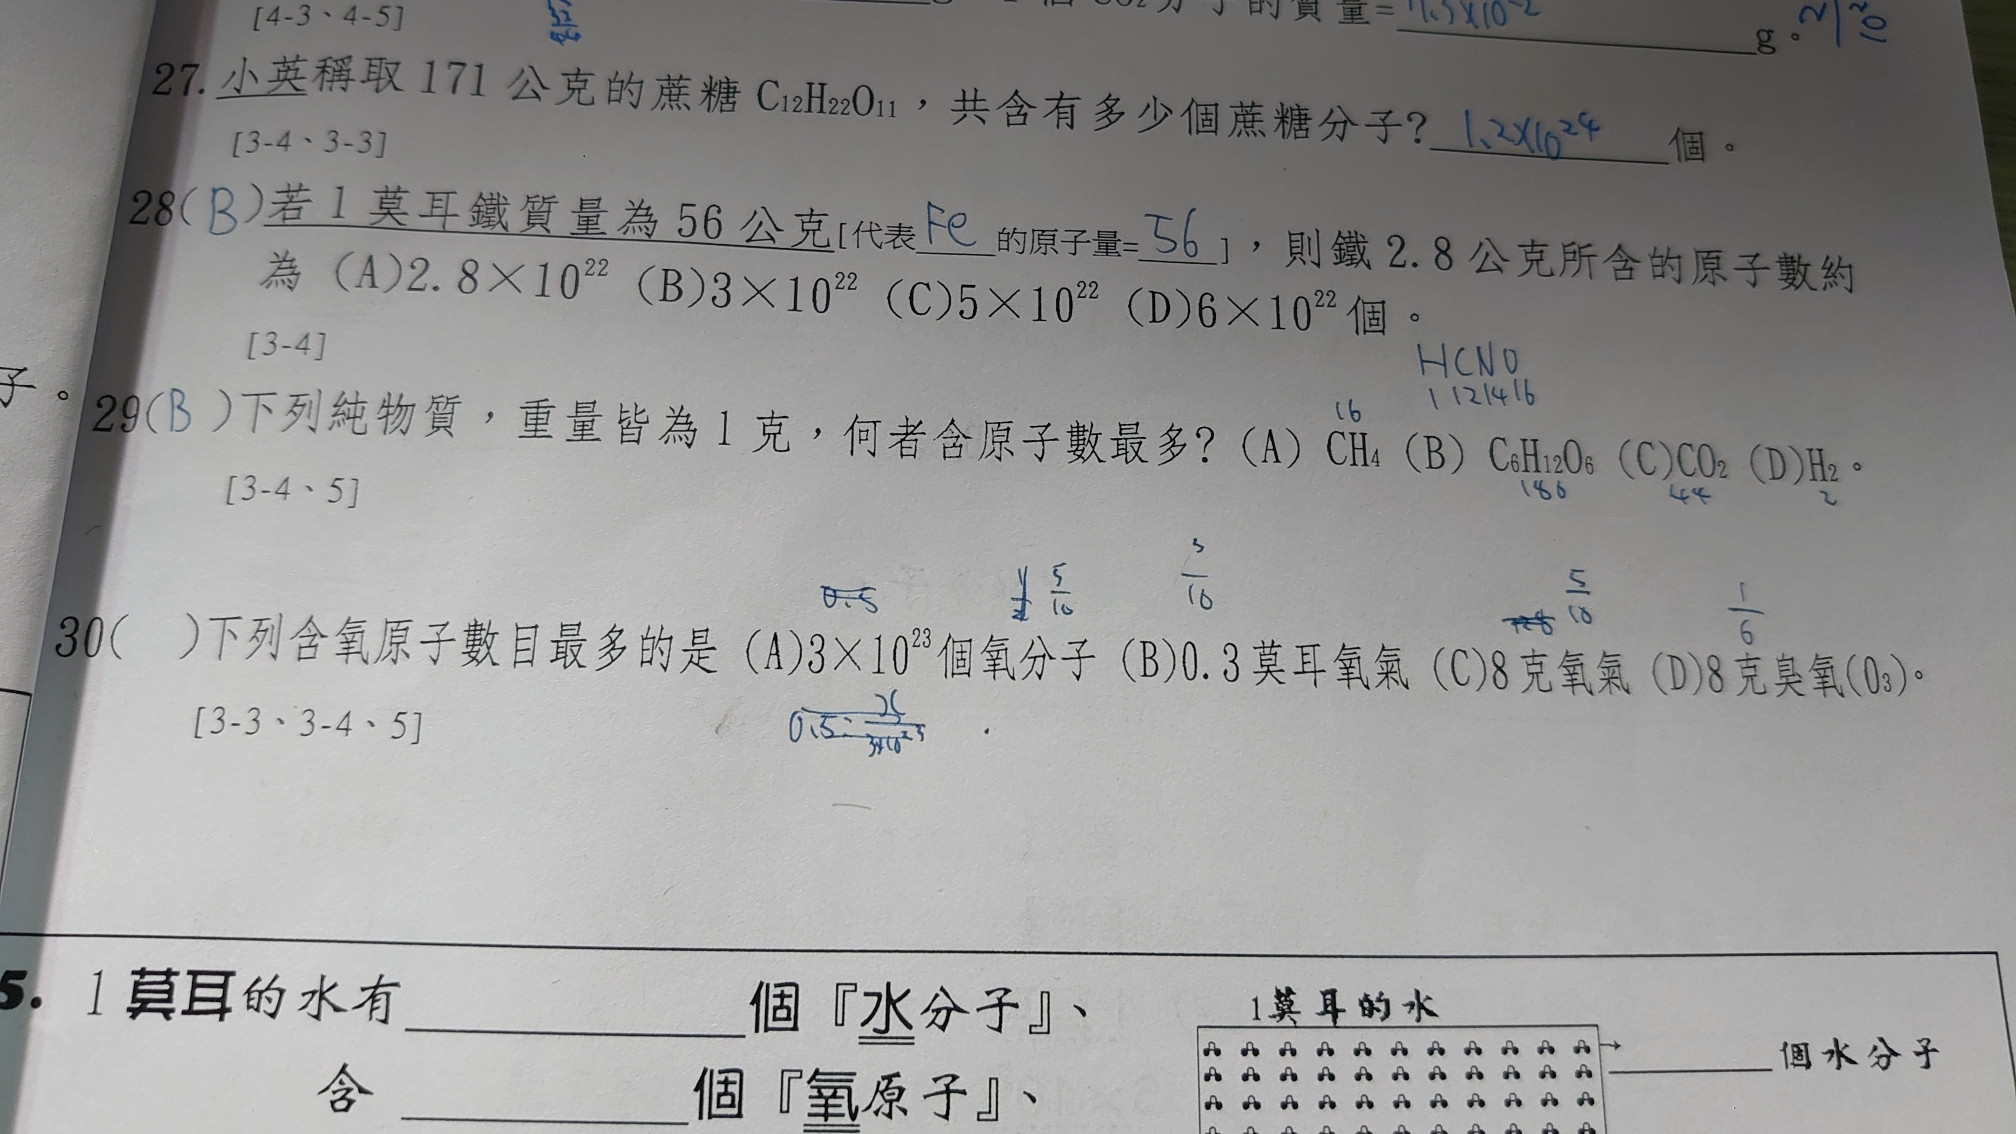 [4-3、4-5]
的質量= 7.3×10⁻² g。
27. 小英稱取 171 公克的蔗糖 C₁₂H₂₂O₁₁，共含有多少個蔗糖分子? 1.2×10²⁴ 個。
[3-4、3-3]
28(B)若 1 莫耳鐵質量為 56 公克[代表 Fe 的原子量= 56 ]，則鐵 2.8 公克所含的原子數約
為 (A)2.8×10²² (B)3×10²² (C)5×10²² (D)6×10²² 個。
[3-4]
HCNO
1 12 14 16
16
29(B)下列純物質，重量皆為 1 克，何者含原子數最多? (A) CH₄ (B) C₆H₁₂O₆ (C)CO₂ (D)H₂。
186 44 2
[3-4、5]
0.5 5/10 3/10 5/10 1/6
30( )下列含氧原子數目最多的是 (A)3×10²³個氧分子 (B)0.3莫耳氧氣 (C)8克氧氣 (D)8克臭氧(O₃)。
[3-3、3-4、5]
5. 1 莫耳的水有 個『水分子』、
1莫耳的水
個水分子
含 個『氧原子』、
子。